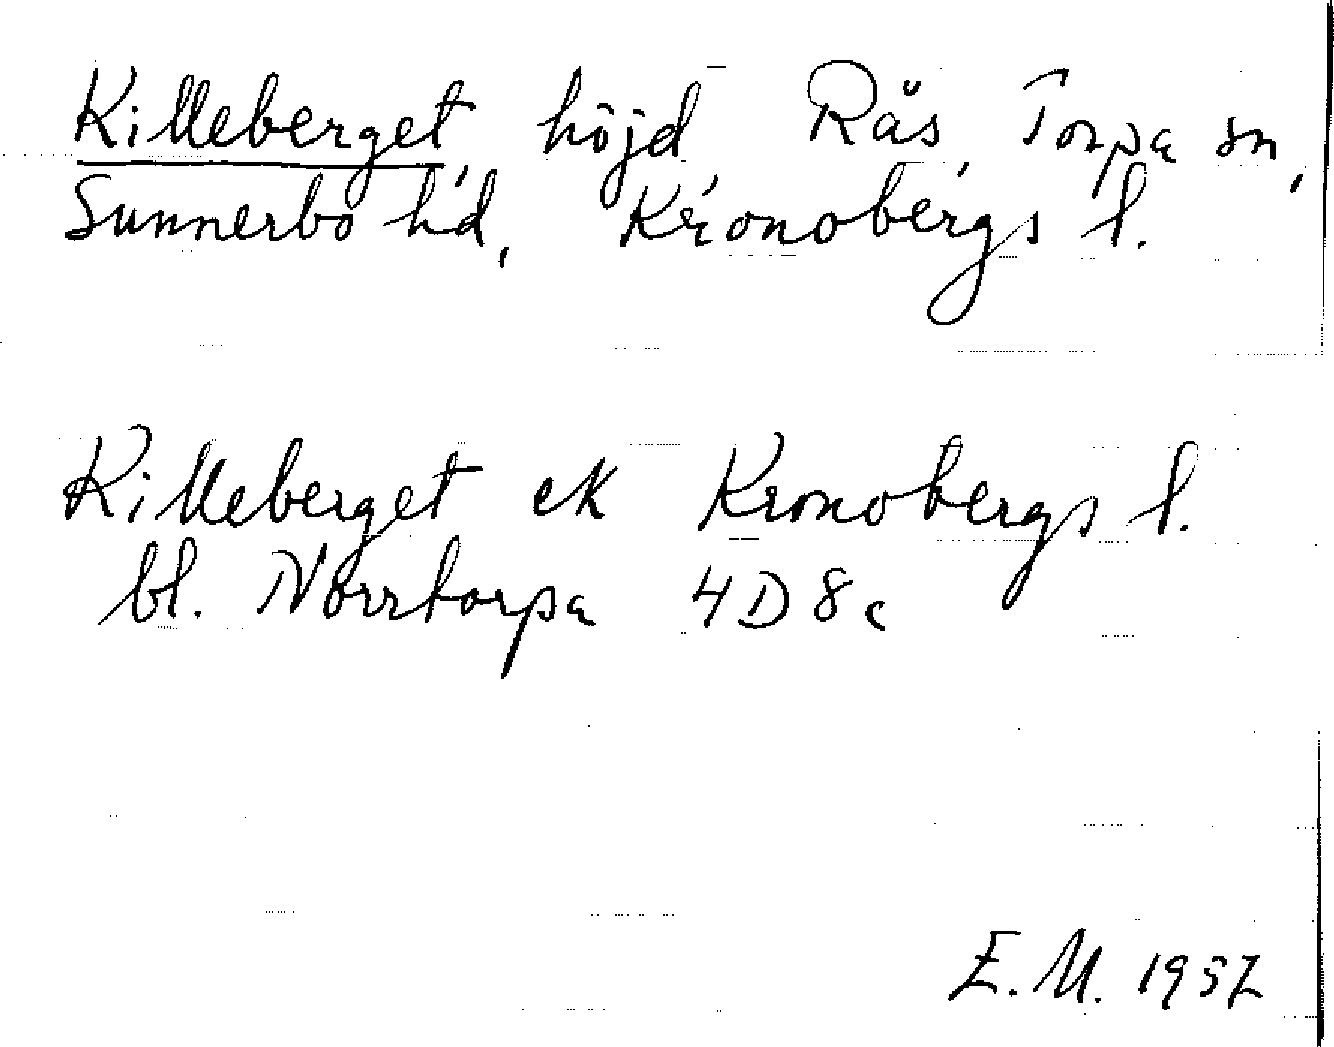 Killeberget, höjd, Rås, Torpa sn,
Sunnerbo hd, Kronobergs l.
Killeberget ek Kronobergs l.
bl. Norrtorpa 4D8c
E.M. 1957